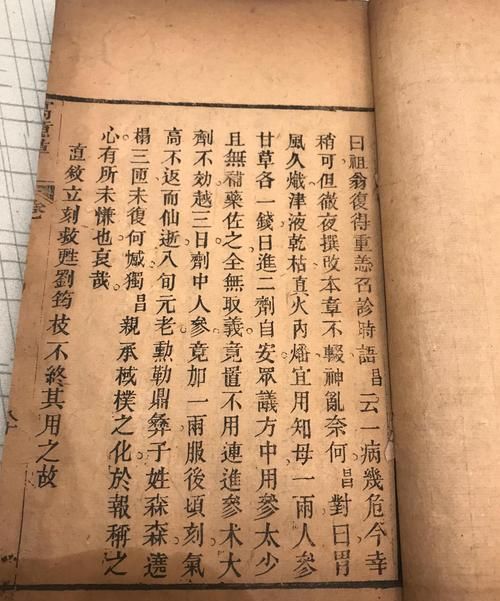 曰祖翁復得重恙召診時語昌云一病幾危今幸
稍可但徹夜撰改本章不輟神亂奈何昌對曰胃
風久熾津液乾枯真火內燔宜用知母一兩人參
甘草各一錢日進二劑自安眾議方中用參太少
且無補藥佐之全無取義竟置不用連進參术大
劑不効越三日劑中人參竟加一兩服後頃刻氣
高不返而仙逝八旬元老勲勒鼎彝子姓森森遶
榻三匝未復何憾獨昌親承棫樸之化於報稱之
心有所未慊也哀哉
直敘立刻救甦劉筠枝不終其用之故
寓意草